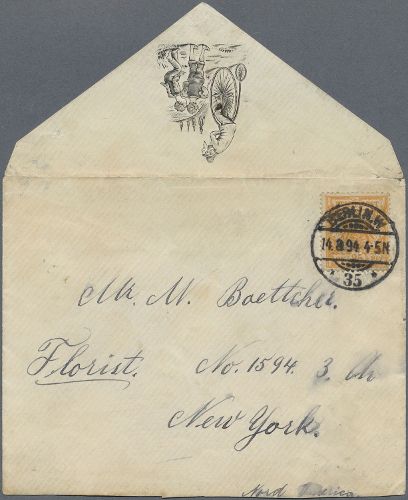 BERLIN.W.
14.8.94 4-5N.
* 35 *
Mr. M. Boettcher.
Florist. No. 1594. 3.
New York.
Nord America